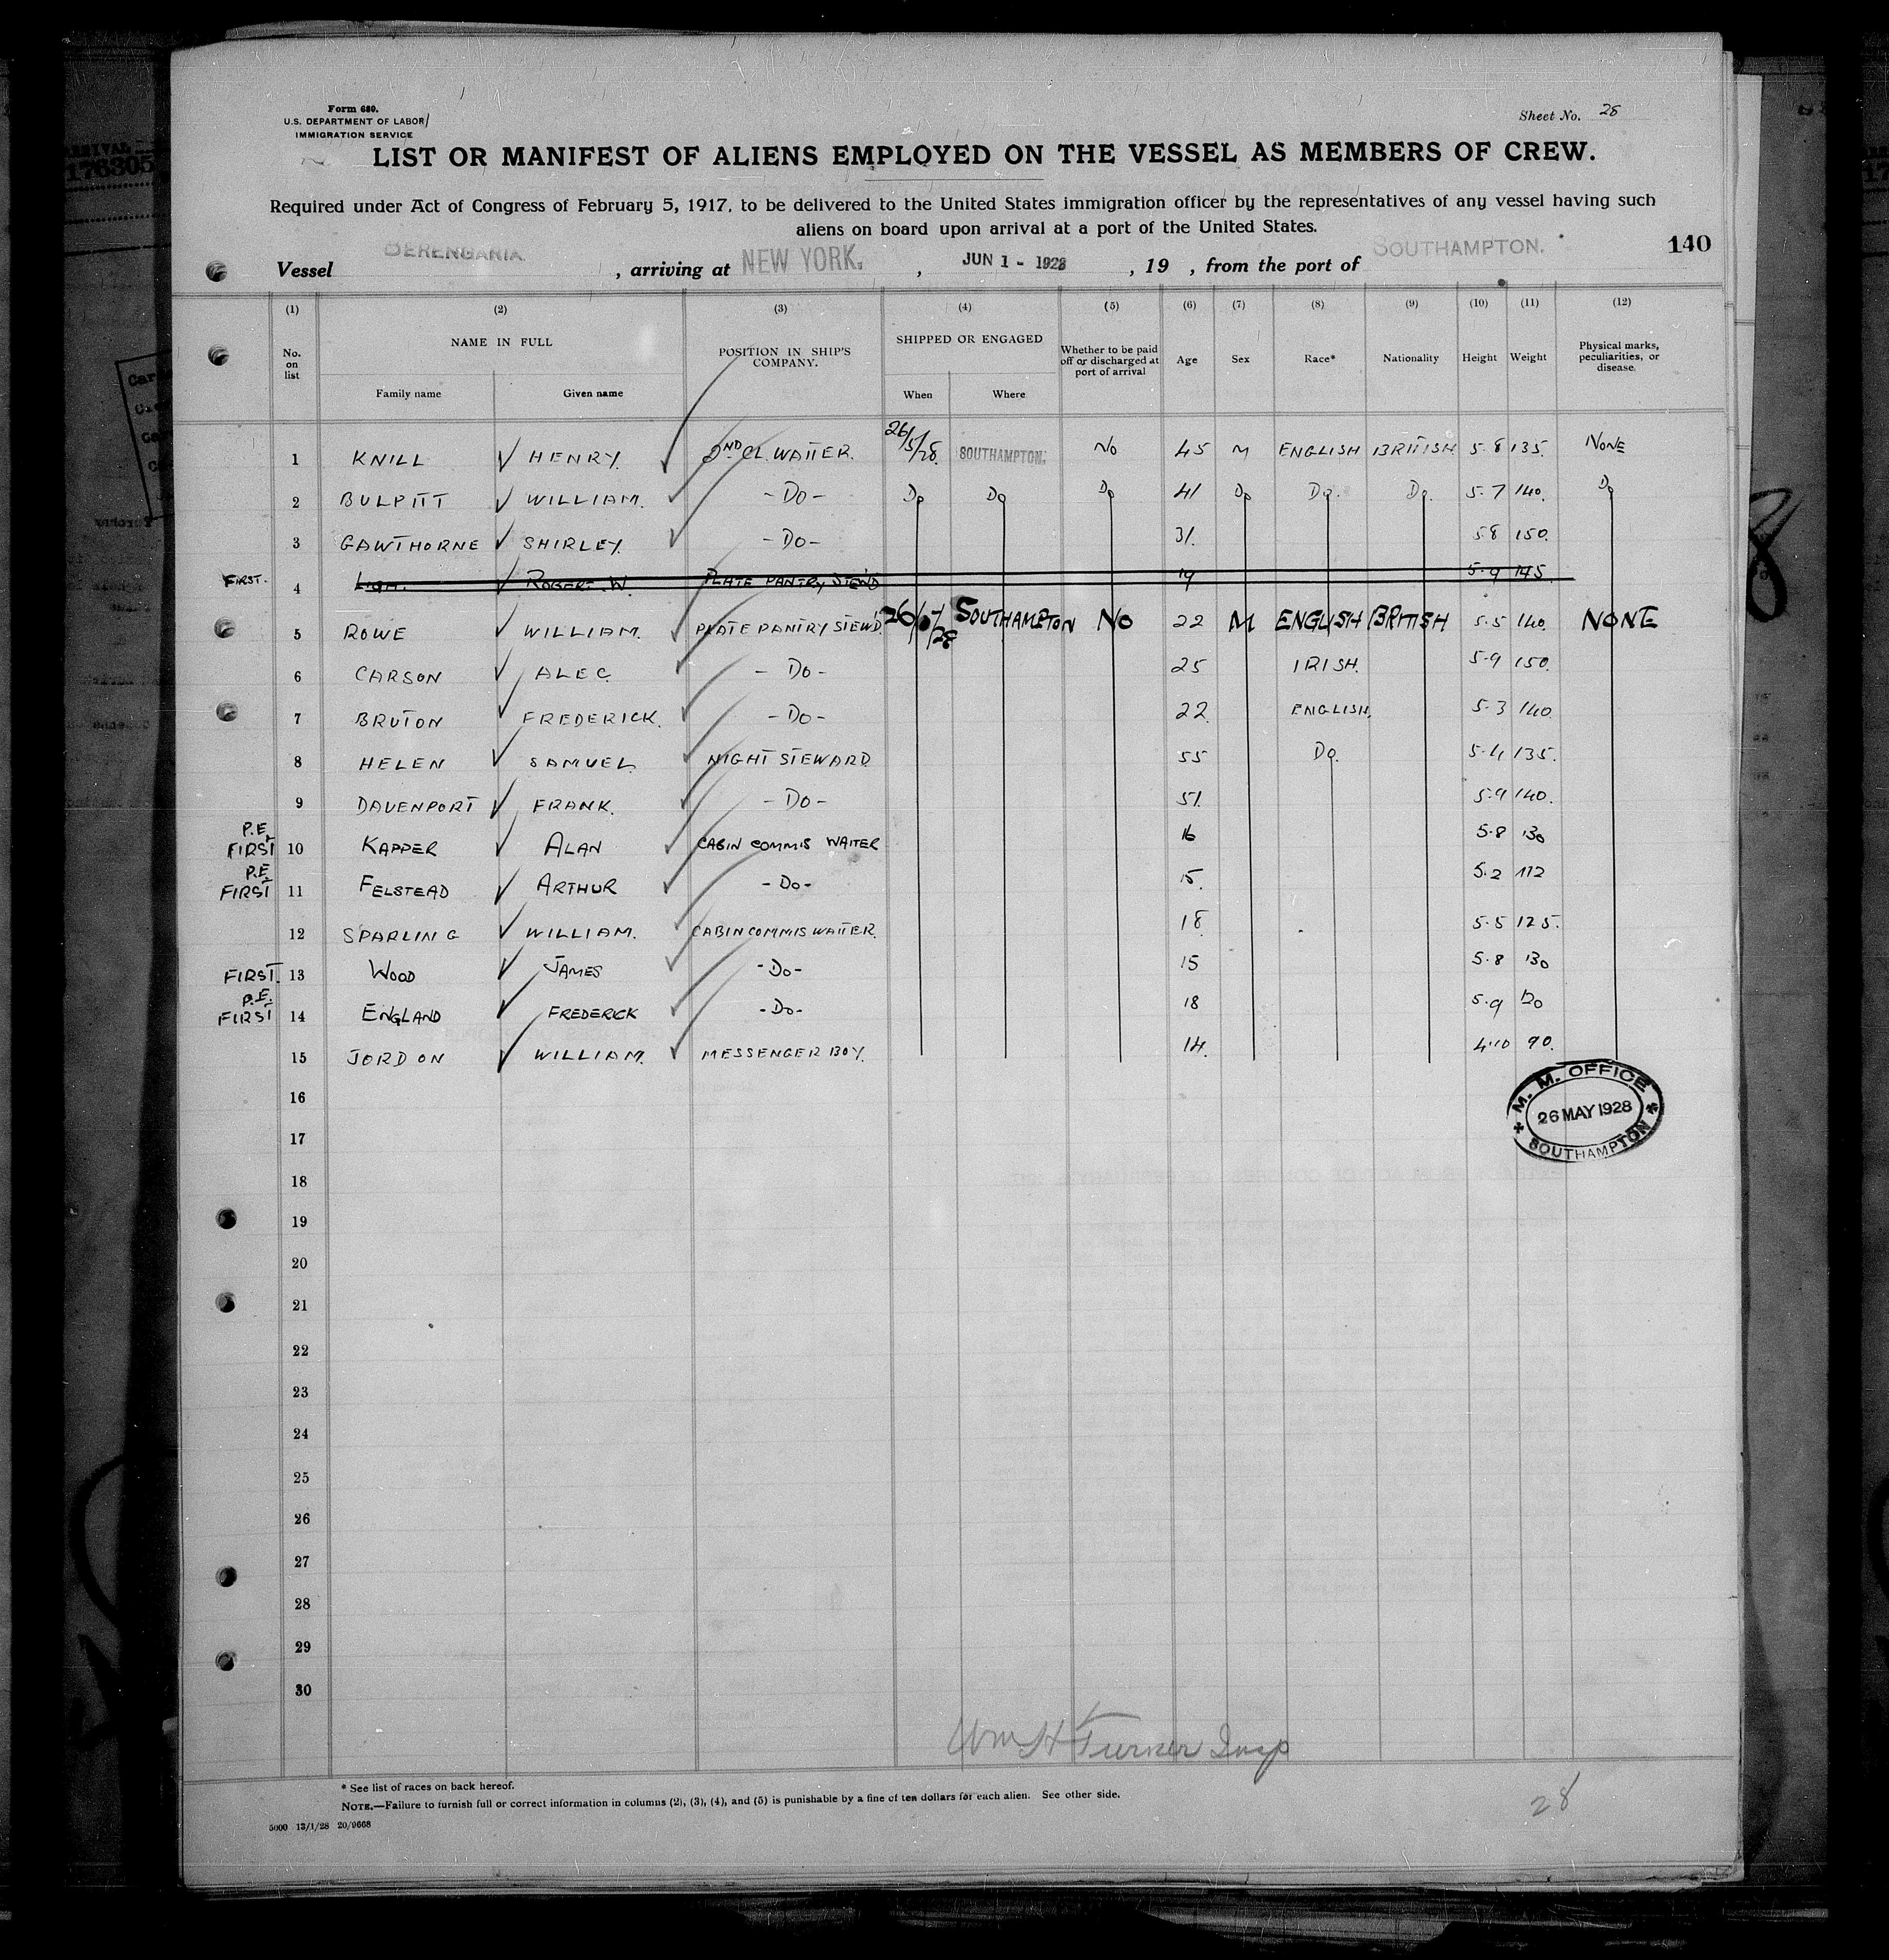 Form 680.
U.S. DEPARTMENT OF LABOR
IMMIGRATION SERVICE
Sheet No. 28
LIST OR MANIFEST OF ALIENS EMPLOYED ON THE VESSEL AS MEMBERS OF CREW.
Required under Act of Congress of February 5, 1917, to be delivered to the United States immigration officer by the representatives of any vessel having such
aliens on board upon arrival at a port of the United States.
140
Vessel BERENGARIA , arriving at NEW YORK. , JUN 1 - 1928 , 19 , from the port of SOUTHAMPTON.
(1) (2) (3) (4) (5) (6) (7) (8) (9) (10) (11) (12)
No. on list NAME IN FULL POSITION IN SHIP'S COMPANY. SHIPPED OR ENGAGED Whether to be paid off or discharged at port of arrival Age Sex Race* Nationality Height Weight Physical marks, peculiarities, or disease.
Family name Given name When Where
1 KNILL HENRY. 2ND CL. WAITER. 26/5/28. SOUTHAMPTON. NO 45 M ENGLISH BRITISH 5-8 135. NONE
2 BULPITT WILLIAM. - DO - DO DO DO 41 DO DO. DO. 5-7 140. DO
3 GAWTHORNE SHIRLEY. - DO - 31. 5 8 150.
FIRST. 4 ROBERT. W. PLATE PANTRY STEWD 19 5-9 145.
5 ROWE WILLIAM. PLATE PANTRY STEWD. 26/5/28 SOUTHAMPTON NO 22 M ENGLISH BRITISH 5-5 140. NONE
6 CARSON ALEC. - DO - 25 IRISH. 5-9 150.
7 BRUTON FREDERICK. - DO - 22. ENGLISH. 5-3 140.
8 HELEN SAMUEL. NIGHT STEWARD. 55 DO. 5-4 135.
9 DAVENPORT FRANK. - DO - 51. 5-9 140.
P.E. FIRST 10 KAPPER ALAN CABIN COMMIS WAITER 16 5-8 130
P.E. FIRST 11 FELSTEAD ARTHUR - DO - 15. 5-2 112
12 SPARLING WILLIAM. CABIN COMMIS WAITER. 18 5-5 125.
FIRST. 13 WOOD JAMES - DO - 15 5-8 130
P.E. FIRST 14 ENGLAND FREDERICK - DO - 18 5-9 120
15 JORDON WILLIAM. MESSENGER BOY. 14. 4-10 90.
M. M. OFFICE
26 MAY 1928
SOUTHAMPTON
16
17
18
19
20
21
22
23
24
25
26
27
28
29
30
Wm H Turner Insp
* See list of races on back hereof.
NOTE.—Failure to furnish full or correct information in columns (2), (3), (4), and (5) is punishable by a fine of ten dollars for each alien. See other side.
5000 13/1/28 20/9668
28